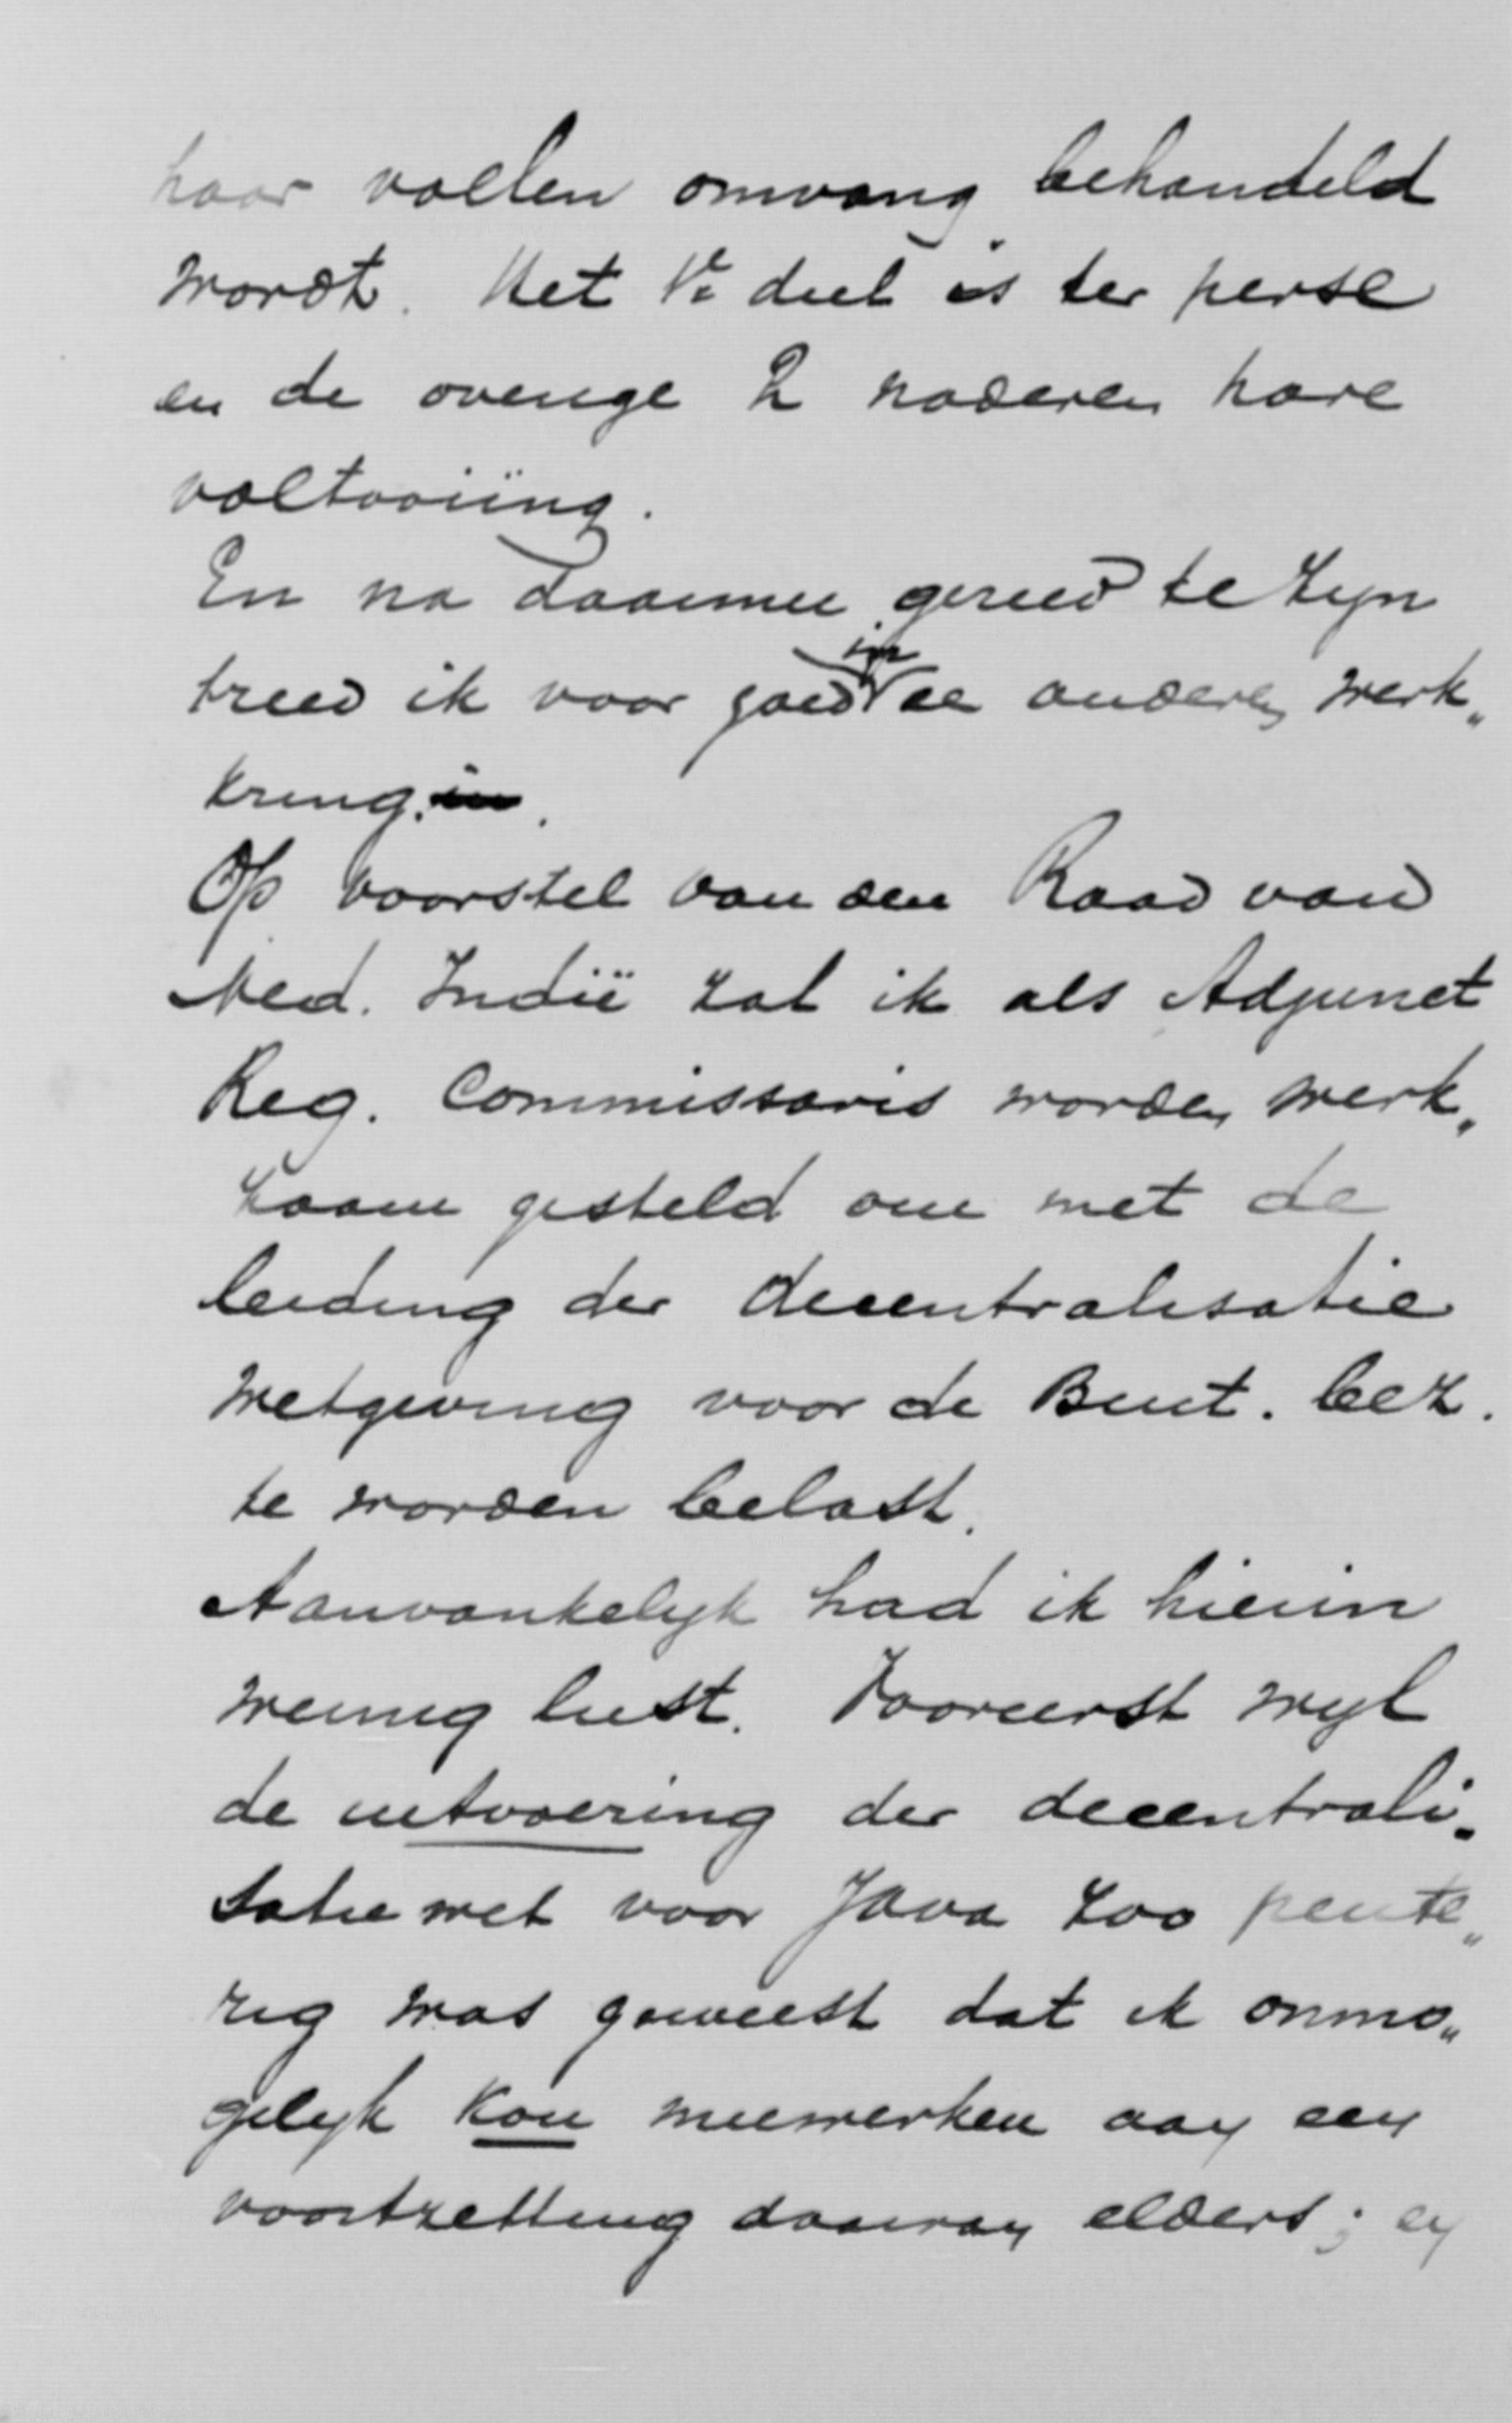 haar vollen omvang behandeld
wordt. Het 1e deel is ter perse
en de overige 2 naderen hare
voltooiïng.
En na daarmee gereed te zyn
treed ik voor goed in een anderen werk„
kring. in.
Op voorstel van den Raad van
Ned. Indië zal ik als Adjunct
Reg. Commissaris worden werk„
zaam gesteld om met de
leiding der decentralisatie
wetgeving voor de Buit. bez.
te worden belast.
Aanvankelyk had ik hierin
weinig lust. Vooreerst wyl
de uitvoering der decentrali„
satie wet voor Java zoo peute„
rig was geweest dat ik onmo„
gelyk kon meewerken aan een
voortzetting daarvan elders; en